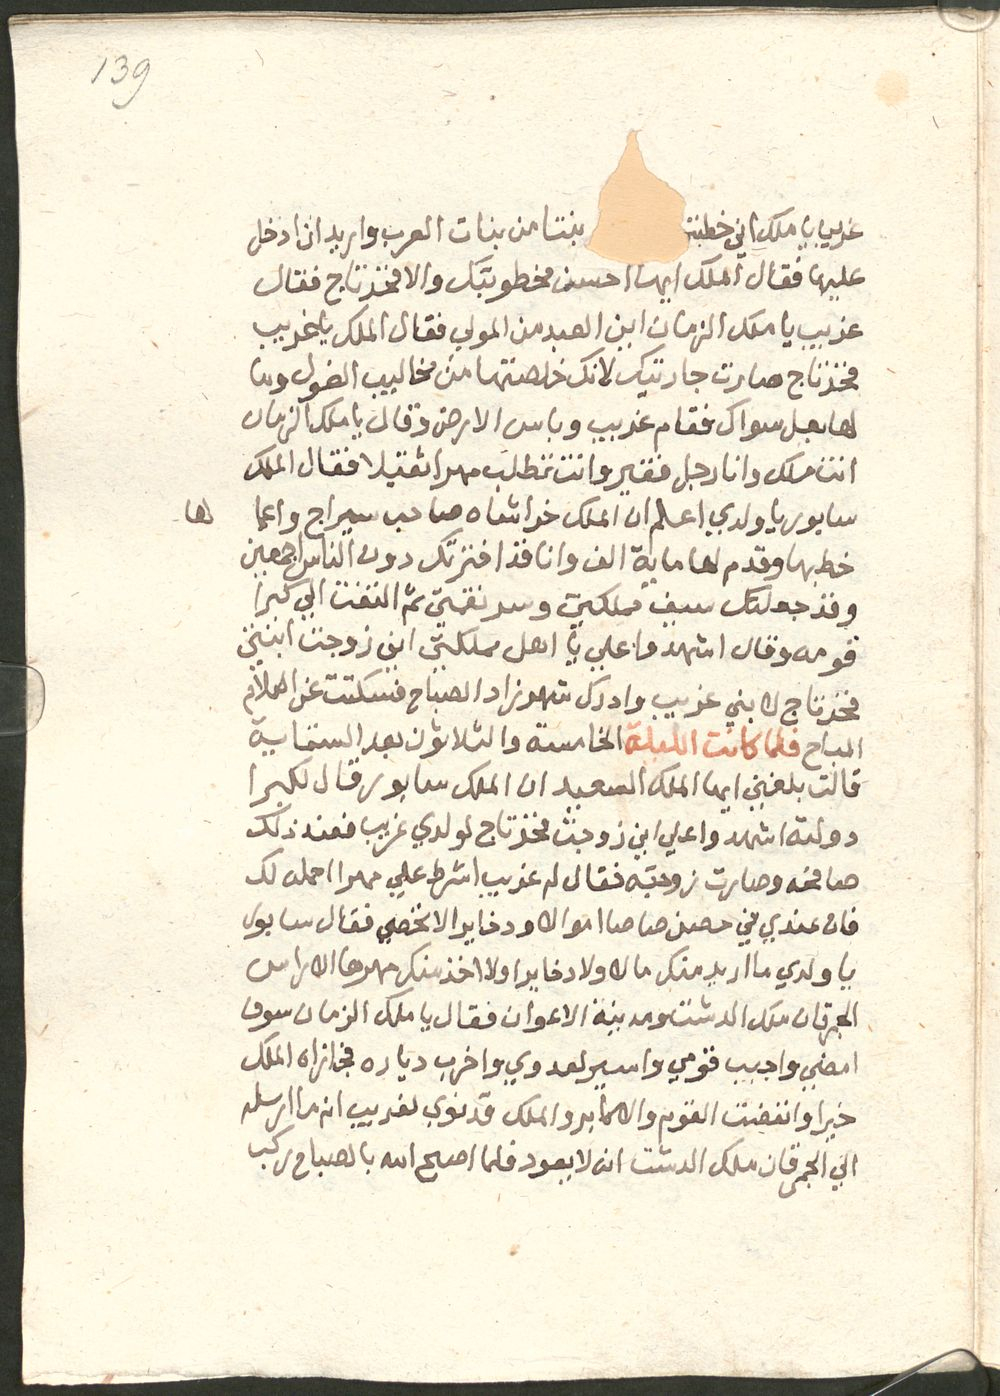 139
غريب يا ملك اني خطبت بنتا من بنات العرب واريد ان ادخل
عليها فقال الملك ايهما احسن مخطوبتك والا فخرتاج فقال
غريب يا ملك الزمان اين العبد من المولي فقال الملك يا غريب
فخرتاج صارت جاريتك لانك خلصتها من مخاليب الغول وما
لها بعل سواك فقام غريب وباس الارض وقال يا ملك الزمان
انت ملك وانا رجل فقير وانت تطلب مهرا ثقيلا فقال الملك
سابور يا ولدي اعلم ان الملك خراشاه صاحب شيراج واعمالها
خطبها وقدم لها ماية الف وانا قد اخترتك دون الناس اجمعين
وقد جعلتك سيف مملكتي وسر نقمتي ثم التفت الي كبرا
قومه وقال اشهدوا علي يا اهل مملكتي اني زوجت ابنتي
فخرتاج لابني غريب وادرك شهرزاد الصباح فسكتت عن الكلام
المباح فلما كانت الليلة الخامسة والثلاثون بعد الستماية
قالت بلغني ايها الملك السعيد ان الملك سابور قال لكبرا
دولته اشهدوا علي اني زوجت فخرتاج لولدي غريب فعند ذلك
صافحه وصارت زوجته فقال له غريب اشرط علي مهرا احمله لك
فان عندي في حصن صاصا اموالا ودخاير لا تحصي فقال سابور
يا ولدي ما اريد منك مالا ولا دخاير ولا اخذ منك مهرها الا راس
الجمرقان ملك الدشت ومدينة الاهوان فقال يا ملك الزمان سوف
امضي واجيب قومي واسير لعدوي واخرب دياره فجازاه الملك
خيرا وانفضت القوم والاكابر والملك قد نوي لغريب انه ما ارسله
الي الجمرقان ملك الدشت انه لا يعود فلما اصبح الله بالصباح ركب